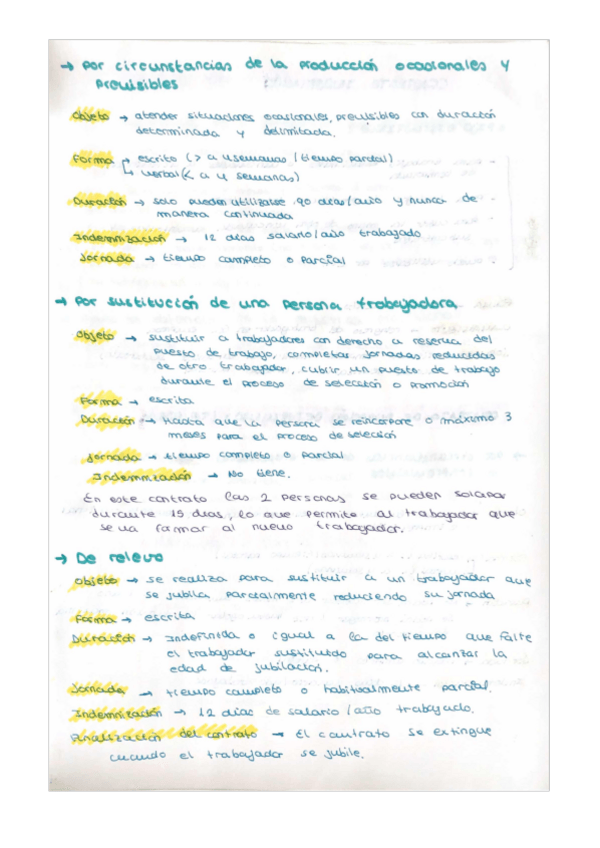 → Por circunstancias de la producción ocasionales y
previsibles
Objeto → atender situaciones ocasionales, previsibles con duración
determinada y delimitada.
Forma → escrito (> a 4 semanas / tiempo parcial)
↳ verbal (< a 4 semanas)
Duración → solo pueden utilizarse 90 días/año y nunca de
manera continuada
Indemnización → 12 días salario/año trabajado
Jornada → tiempo completo o parcial
→ Por sustitución de una persona trabajadora
Objeto → sustituir a trabajadores con derecho a reserva del
puesto de trabajo, completar jornadas reducidas
de otro trabajador, cubrir un puesto de trabajo
durante el proceso de selección o promoción
Forma → escrita
Duración → Hasta que la persona se reincorpore o máximo 3
meses para el proceso de selección
Jornada → tiempo completo o parcial
Indemnización → No tiene.
En este contrato las 2 personas se pueden solapar
durante 15 días, lo que permite al trabajador que
se va formar al nuevo trabajador.
→ De relevo
Objeto → se realiza para sustituir a un trabajador que
se jubila parcialmente reduciendo su jornada
Forma → escrita
Duración → Indefinida o igual a la del tiempo que falte
el trabajador sustituido para alcanzar la
edad de jubilación.
Jornada → tiempo completo o habitualmente parcial.
Indemnización → 12 días de salario/año trabajado.
Finalización del contrato → El contrato se extingue
cuando el trabajador se jubile.